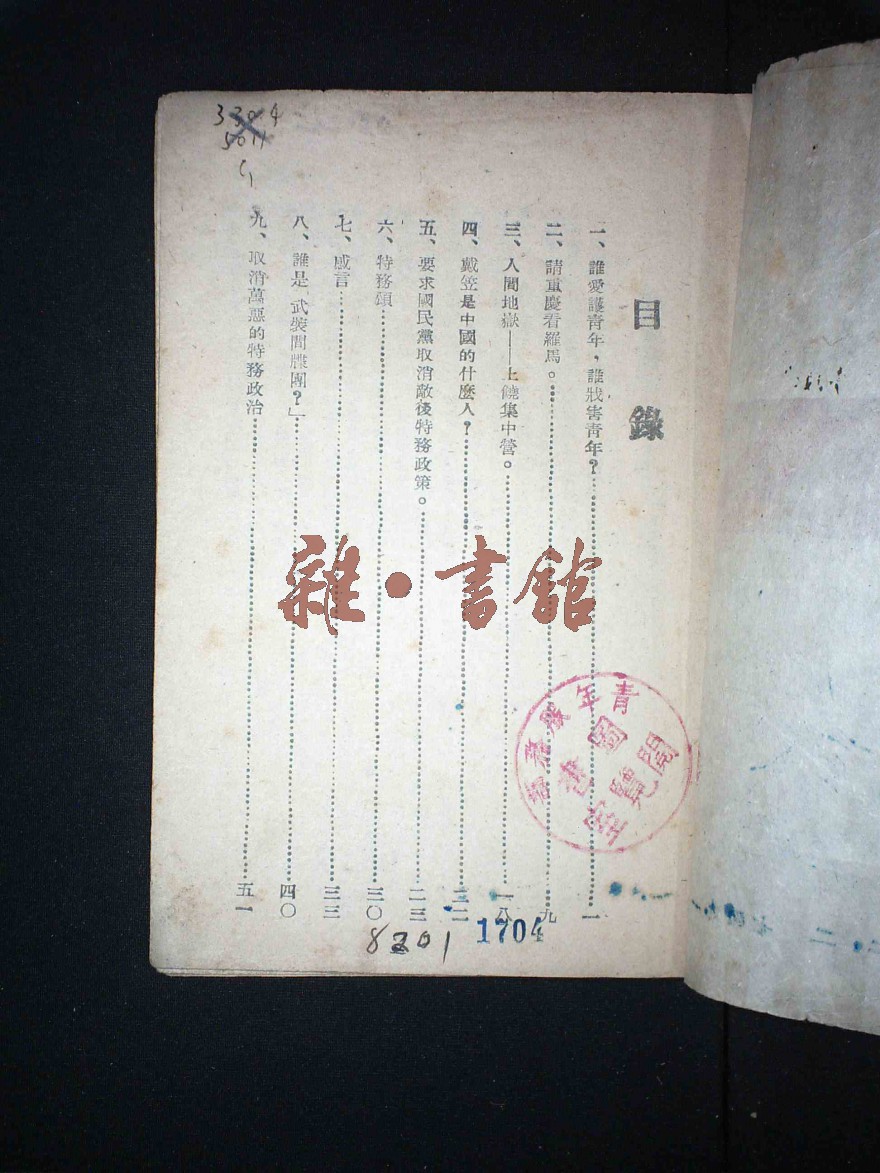 目錄
一、誰愛護靑年，誰戕害靑年？……一
二、請重慶看羅馬。……九
三、人間地獄——上饒集中營。……一八
四、戴笠是中國的什麼人？……二二
五、要求國民黨取消敵後特務政策。……二三
六、特務頌……三〇
七、感言……三三
八、誰是「武裝間牒團？」……四〇
九、取消萬惡的特務政治……五一
雜·書館
青年服務部
圖書
閱覽室
8201
1704